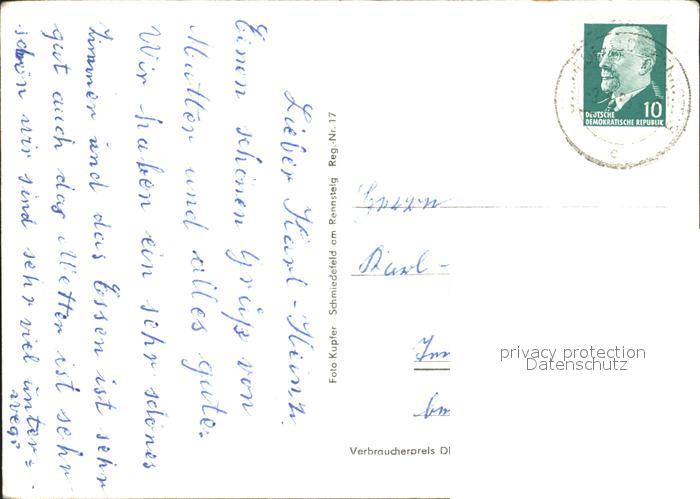 Lieber Karl-Heinz.
Einen schönen Gruß von
Mutter und alles gute.
Wir haben ein sehr schönes
Zimmer und das Essen ist sehr
gut auch das Wetter ist sehr
schön wir sind sehr viel unter=
wegs.
Foto-Kupfer Schmiedefeld am Rennsteig Reg.-Nr. 17
DEUTSCHE
DEMOKRATISCHE REPUBLIK
10
c
Herrn
Karl-
privacy protection
Datenschutz
Verbraucherpreis